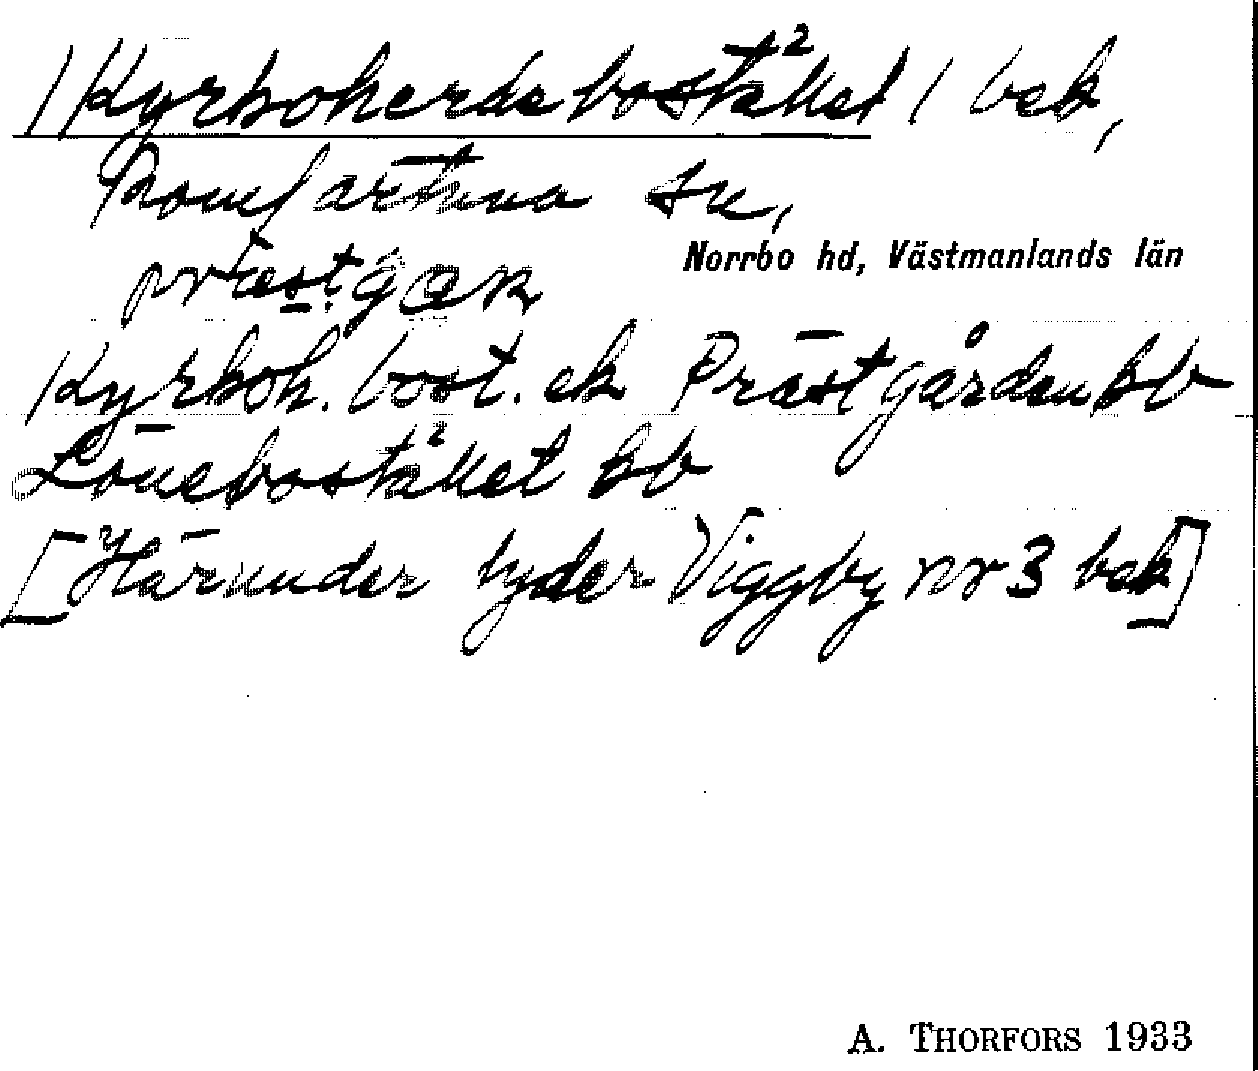 /Kyrkoherdebostället/ bek,
Romfartuna sn,
Norrbo hd, Västmanlands län
præstgæṇ
Kyrkoh. bost. ek Prästgården bb
Lönebostället bb
[Härunder lyder Viggby nr 3 bek]
A. THORFORS 1933